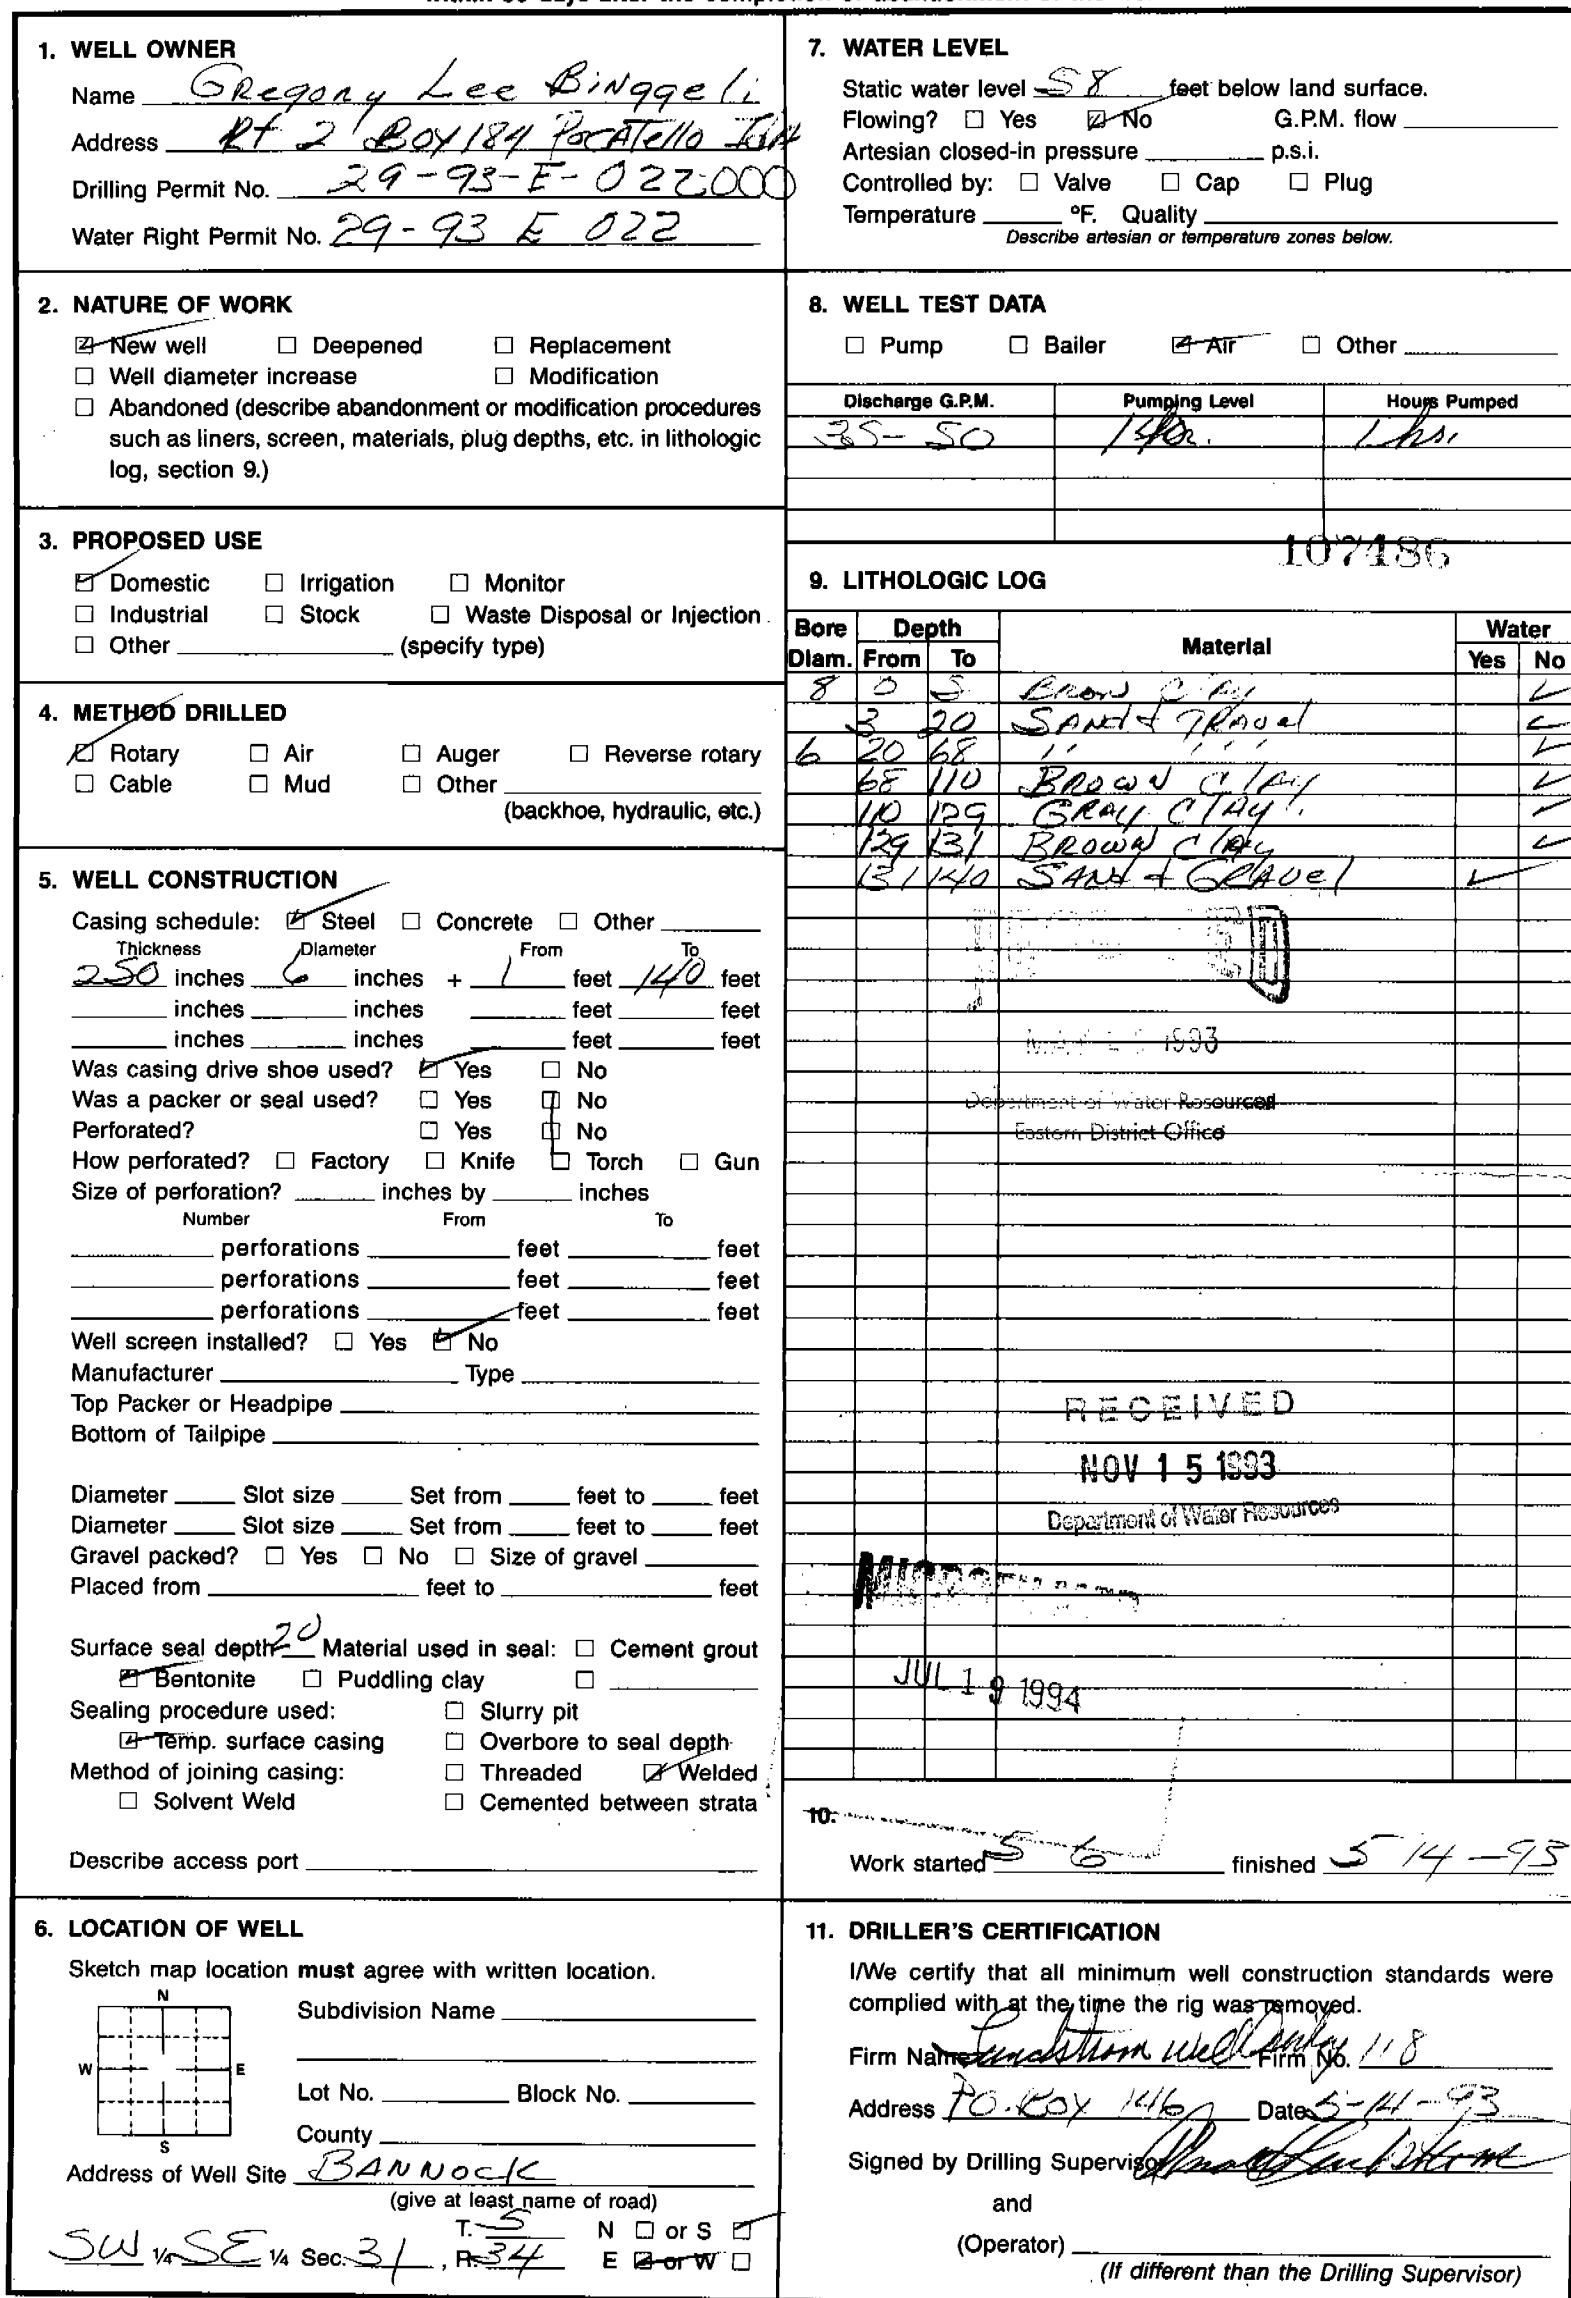 1. WELL OWNER
Name Gregory Lee Binggeli
Address Rt 2 Box 184 Pocatello Ida
Drilling Permit No. 29-93-E-022:000
Water Right Permit No. 29-93 E 022
2. NATURE OF WORK
☑ New well ☐ Deepened ☐ Replacement
☐ Well diameter increase ☐ Modification
☐ Abandoned (describe abandonment or modification procedures
such as liners, screen, materials, plug depths, etc. in lithologic
log, section 9.)
3. PROPOSED USE
☑ Domestic ☐ Irrigation ☐ Monitor
☐ Industrial ☐ Stock ☐ Waste Disposal or Injection
☐ Other (specify type)
4. METHOD DRILLED
☑ Rotary ☐ Air ☐ Auger ☐ Reverse rotary
☐ Cable ☐ Mud ☐ Other
(backhoe, hydraulic, etc.)
5. WELL CONSTRUCTION
Casing schedule: ☑ Steel ☐ Concrete ☐ Other
Thickness Diameter From To
250 inches 6 inches + 1 feet 140 feet
inches inches feet feet
inches inches feet feet
Was casing drive shoe used? ☑ Yes ☐ No
Was a packer or seal used? ☐ Yes ☑ No
Perforated? ☐ Yes ☑ No
How perforated? ☐ Factory ☐ Knife ☐ Torch ☐ Gun
Size of perforation? inches by inches
Number From To
perforations feet feet
perforations feet feet
perforations feet feet
Well screen installed? ☐ Yes ☑ No
Manufacturer Type
Top Packer or Headpipe
Bottom of Tailpipe
Diameter Slot size Set from feet to feet
Diameter Slot size Set from feet to feet
Gravel packed? ☐ Yes ☐ No ☐ Size of gravel
Placed from feet to feet
Surface seal depth 20 Material used in seal: ☐ Cement grout
☑ Bentonite ☐ Puddling clay ☐
Sealing procedure used: ☐ Slurry pit
☑ Temp. surface casing ☐ Overbore to seal depth
Method of joining casing: ☐ Threaded ☑ Welded
☐ Solvent Weld ☐ Cemented between strata
Describe access port
6. LOCATION OF WELL
Sketch map location must agree with written location.
N
W E
S
Subdivision Name
Lot No. Block No.
County
Address of Well Site BANNOCK
(give at least name of road)
T. 5 N ☐ or S ☑
SW ¼ SE ¼ Sec. 31, R. 34 E ☑ or W ☐
7. WATER LEVEL
Static water level 58 feet below land surface.
Flowing? ☐ Yes ☑ No G.P.M. flow
Artesian closed-in pressure p.s.i.
Controlled by: ☐ Valve ☐ Cap ☐ Plug
Temperature °F. Quality
Describe artesian or temperature zones below.
8. WELL TEST DATA
☐ Pump ☐ Bailer ☑ Air ☐ Other
Discharge G.P.M. Pumping Level Hours Pumped
35-50 1 hr.
107486
9. LITHOLOGIC LOG
Bore Diam. Depth From To Material Water Yes No
8 0 Brow Clay ✓
3 20 Sand & Gravel ✓
6 20 68 ,, ,,, ✓
68 110 Brown Clay ✓
110 129 Gray Clay ✓
129 131 Brown Clay ✓
131 140 Sand & Gravel ✓
1993
Department of Water Resources
Eastern District Office
RECEIVED
NOV 15 1993
Department of Water Resources
JUL 19 1994
10.
Work started 5 6 finished 5 14-93
11. DRILLER'S CERTIFICATION
I/We certify that all minimum well construction standards were
complied with at the time the rig was removed.
Firm Name Lundstrom Well Firm No. 118
Address P.O. Box 146 Date 5-14-93
Signed by Drilling Supervisor
and
(Operator)
(If different than the Drilling Supervisor)